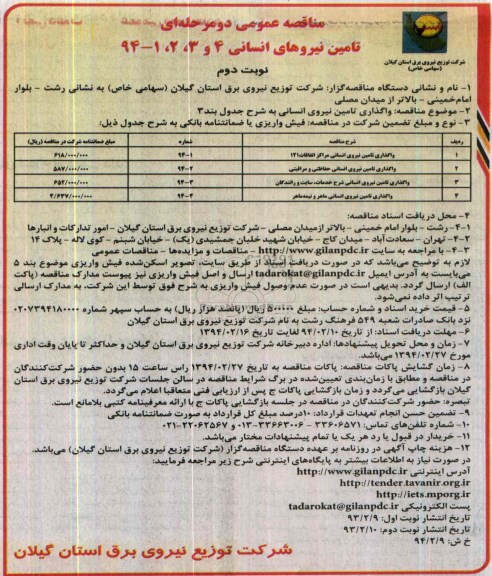 مناقصه عمومی دومرحله‌ای
تامین نیروهای انسانی ۴ و ۳، ۲، ۱-۹۴
نوبت دوم
شرکت توزیع نیروی برق استان گیلان
(سهامی خاص)
۱- نام و نشانی دستگاه مناقصه‌گزار: شرکت توزیع نیروی برق استان گیلان (سهامی خاص) به نشانی رشت - بلوار
امام‌خمینی - بالاتر از میدان مصلی
۲- موضوع مناقصه: واگذاری تامین نیروی انسانی به شرح جدول بند۳
۳- نوع و مبلغ تضمین شرکت در مناقصه: فیش واریزی یا ضمانتنامه بانکی به شرح جدول ذیل:
ردیف شرح مناقصه شماره مبلغ ضمانتنامه شرکت در مناقصه (ریال)
۱ واگذاری تامین نیروی انسانی مراکز اتفاقات۱۲۱ ۹۴-۱ ۶۱۸/۰۰۰/۰۰۰
۲ واگذاری تامین نیروی انسانی حفاظتی و مراقبتی ۹۴-۲ ۵۸۷/۰۰۰/۰۰۰
۳ واگذاری تامین نیروی انسانی شرح خدمات، سایت و رانندگان ۹۴-۳ ۶۵۲/۰۰۰/۰۰۰
۴ واگذاری تامین نیروی انسانی ماهر و نیمه‌ماهر ۹۴-۴ ۳/۶۳۷/۰۰۰/۰۰۰
۴- محل دریافت اسناد مناقصه:
۴-۱- رشت - بلوار امام خمینی - بالاتر ازمیدان مصلی - شرکت توزیع نیروی برق استان گیلان - امور تدارکات و انبارها
۴-۲- تهران - سعادت‌آباد - میدان کاج - خیابان شهید خلبان جمشیدی (یک) - خیابان شبنم - کوی لاله - پلاک ۱۴
۴-۳- با مراجعه به سایت http://www.gilanpdc.ir - مناقصات و مزایده‌ها - مناقصات عمومی
لازم به توضیح می‌باشد که در صورت دریافت اسناد از طریق سایت، تصویر اسکن‌شده فیش واریزی موضوع بند ۵
می‌بایست به آدرس ایمیل tadarokat@gilanpdc.ir ارسال و اصل فیش واریزی نیز پیوست مدارک مناقصه (پاکت
الف) ارسال گردد. بدیهی است در صورت عدم وصول فیش واریزی به شرح فوق توسط این شرکت، به مدارک ارسالی
ترتیب اثر داده نمی‌شود.
۵- قیمت خرید اسناد و شماره حساب: مبلغ ۵۰۰۰۰۰ ریال (پانصد هزار ریال) به حساب سپهر شماره ۰۲۰۷۳۹۴۱۸۰۰۰۰
نزد بانک صادرات شعبه ۵۴۹ فرهنگ رشت به نام شرکت توزیع نیروی برق استان گیلان
۶- مهلت دریافت اسناد: از تاریخ ۹۴/۰۲/۱۰ لغایت تاریخ ۱۳۹۴/۰۲/۱۶
۷- زمان و محل تحویل پیشنهادها: اداره دبیرخانه شرکت توزیع نیروی برق استان گیلان و حداکثر تا پایان وقت اداری
مورخ ۱۳۹۴/۰۲/۲۷ می‌باشد.
۸- زمان گشایش پاکات مناقصه: پاکات مناقصه به تاریخ ۱۳۹۴/۰۲/۲۷ راس ساعت ۱۵ بدون حضور شرکت‌کنندگان
در مناقصه و مطابق با زمان‌بندی تعیین‌شده در برگ شرایط مناقصه در سالن جلسات شرکت توزیع نیروی برق استان
گیلان بازگشایی می‌گردد و زمان بازگشایی پاکات ج پس از ارزیابی فنی متعاقبا اعلام می‌گردد.
تبصره: حضور شرکت‌کنندگان در مناقصه در جلسه بازگشایی پاکات ج با ارائه معرفینامه کتبی بلامانع است.
۹- تضمین حسن انجام تعهدات قرارداد: ۱۰درصد مبلغ کل قرارداد به صورت ضمانتنامه بانکی
۱۰- شماره تلفن‌های تماس: ۳۳۶۰۶۵۷۱ - ۳۳۶۶۳۰۰۶-۰۱۳ و ۲۲۰۶۲۵۶۷-۰۲۱
۱۱- خریدار در قبول یا رد هر یک یا تمام پیشنهادات مختار می‌باشد.
۱۲- هزینه چاپ آگهی در روزنامه بر عهده دستگاه مناقصه‌گزار (شرکت توزیع نیروی برق استان گیلان) می‌باشد.
در صورت نیاز به اطلاعات بیشتر به پایگاه‌های اینترنتی شرح زیر مراجعه فرمایید:
آدرس اینترنتی http://www.gilanpdc.ir
http://tender.tavanir.org.ir
http://iets.mporg.ir
پست الکترونیکی tadarokat@gilanpdc.ir
تاریخ انتشار نوبت اول: ۹۳/۲/۹
تاریخ انتشار نوبت دوم: ۹۳/۲/۱۰
خ ش: ۹۴/۲/۹
شرکت توزیع نیروی برق استان گیلان